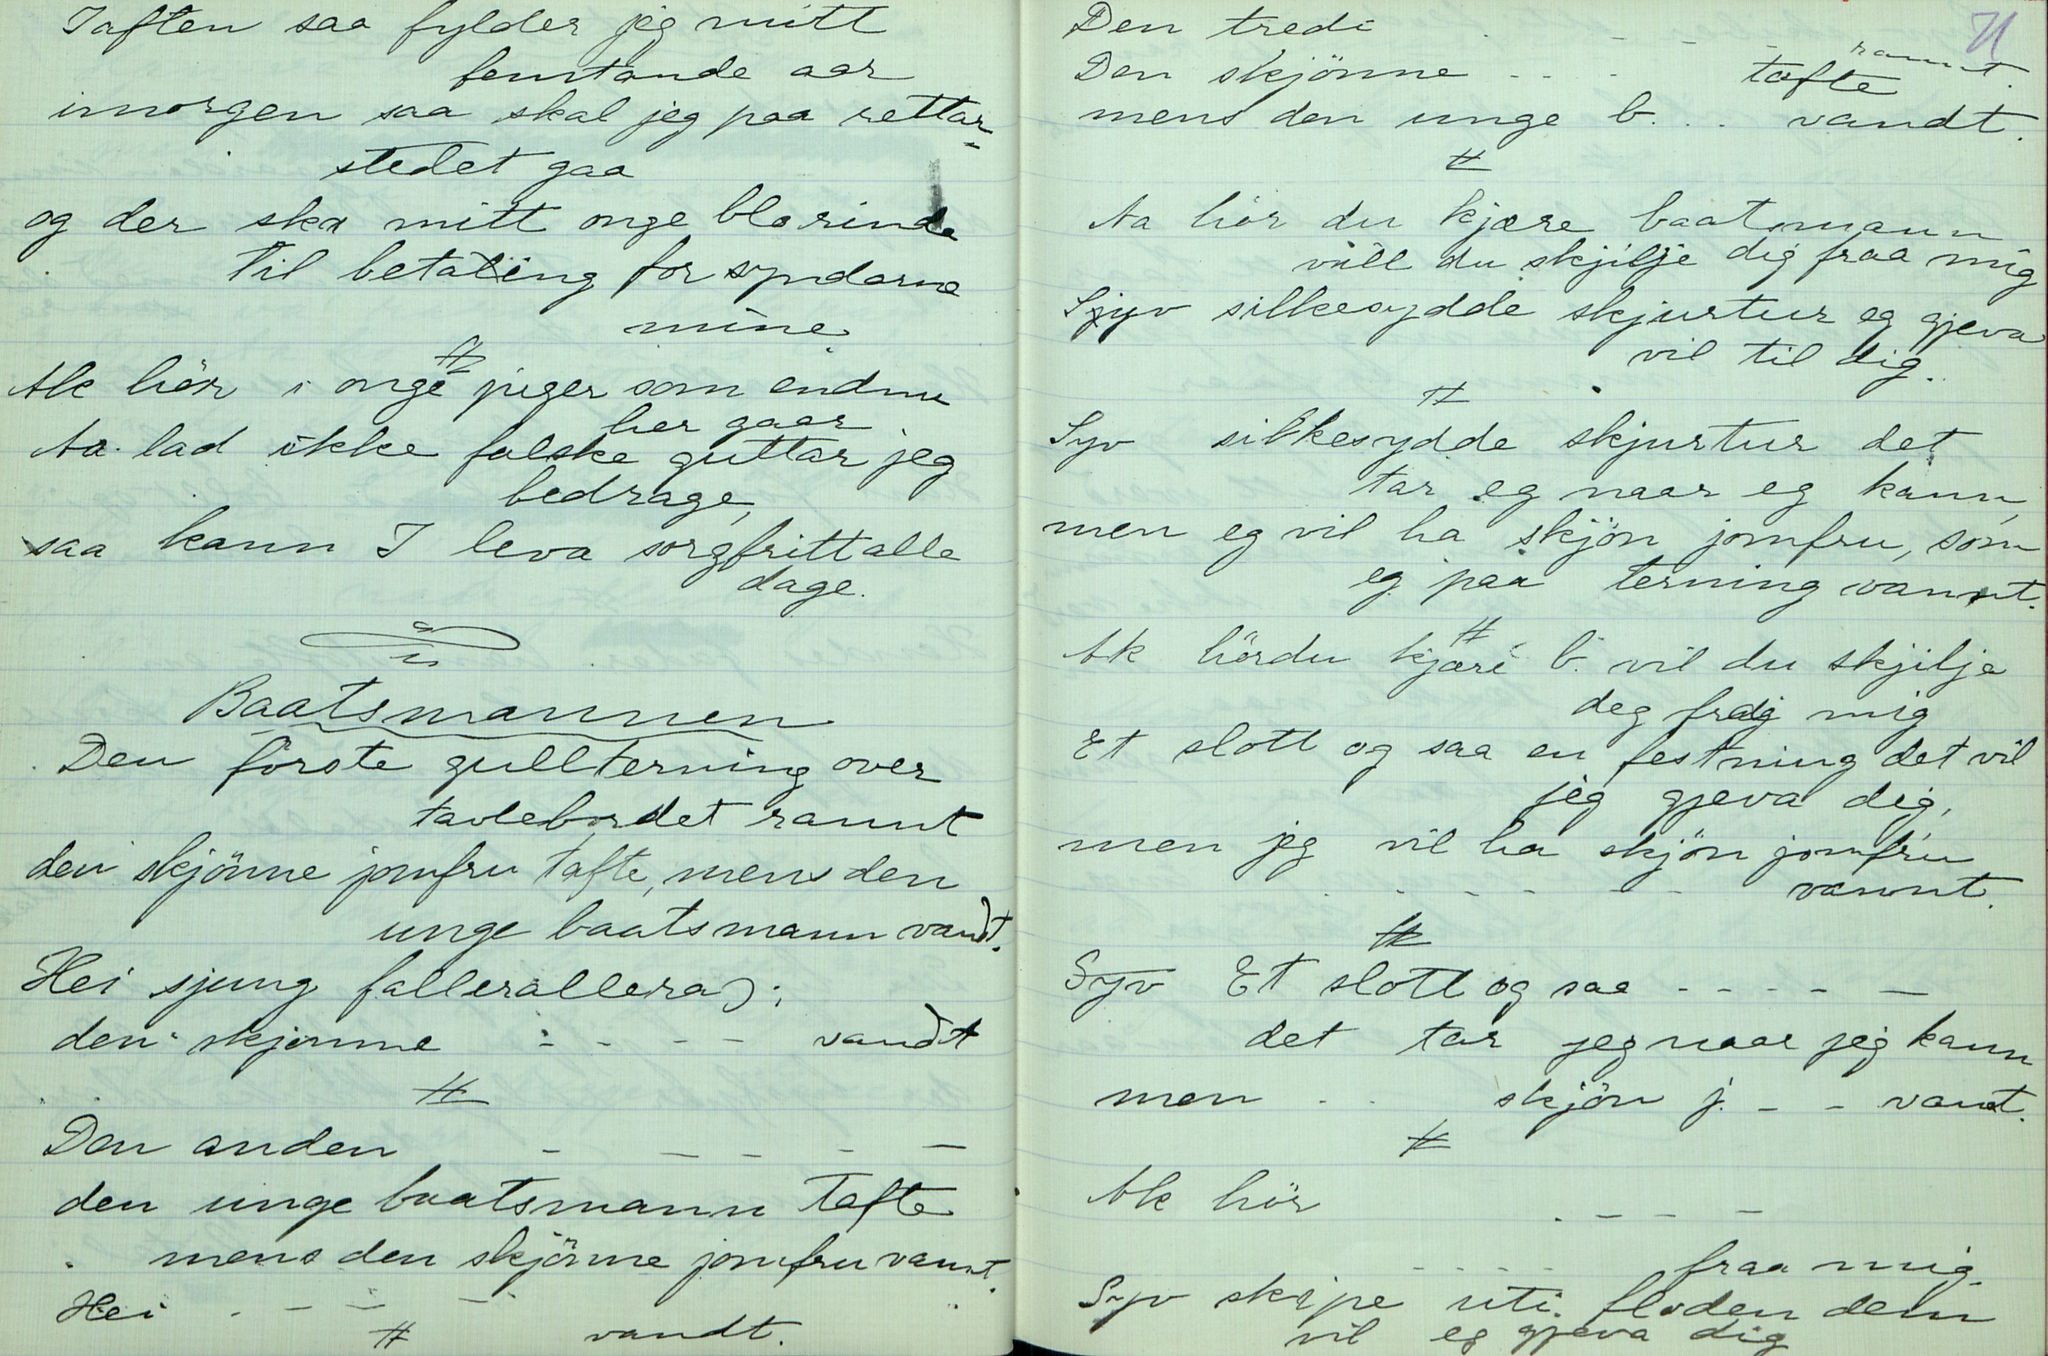 Iaften saa fylder jeg mitt
femtande aar
imorgen saa skal jeg paa rettar-
stedet gaa
og der ska mitt onge blo rinde
til betaling for syndarne
mine.
#
Ak hör i onge piger som endnu
her gaar
Aa lad ikke falske guttar jeg
bedrage,
saa kann I leva sorgfritt alle
dage.
Baatsmannen
Den förste gullterning over
tavlebordet rannt
den skjönne jomfru tafte, mens den
unge baatsmann vandt.
Hei sjung fallerallera);
den skjönne - - - - vandt
#
Den anden - - - - -
den unge baatsmann tafte
mens den skjönne jomfru vannt.
Hei - - - - -
# vandt.
71
Den tredi - - - - rannt.
Den skjönne - - - tafte
mens den unge b. . . vandt.
#
Aa hör du kjære baatsmann
vill du skjilje dig fraa mig
Syv silkesydde skjurtur eg gjeva
vil til dig.
#
Syv silkesydde skjurtur det
tar eg naar eg kann,
men eg vil ha skjön jomfru, som
eg paa terning vannt.
#
Ak hördu kjæri b. vil du skjilja
deg fraa mig
Et slott og saa en festning det vil
jeg gjeva dig,
men jeg vil ha skjön jomfru
- - - - - - vannt.
#
Syv Et slott og saa - - - - -
det tar jeg naar jeg kann
men - - skjön j. - - vant.
#
Ak hör - - - -
- - - - fraa mig.
Syv skipe uti floden dem
vil eg gjeva dig